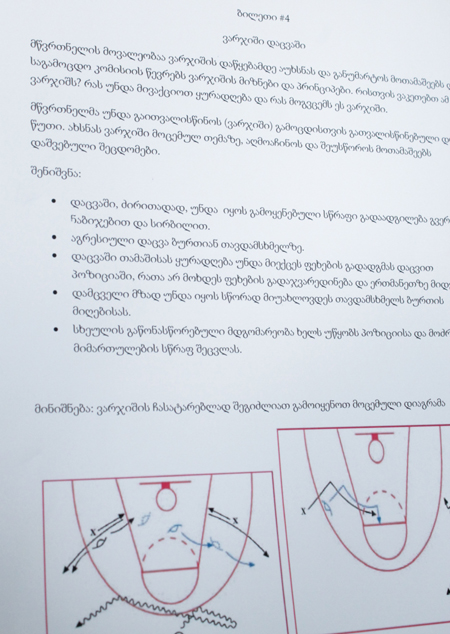 ბილეთი #4
ვარჯიში დაცვაში
მწვრთნელის მოვალეობაა ვარჯიშის დაწყებამდე აუხსნას და განუმარტოს მოთამაშეებს
საგამოცდო კომისიის წევრებს ვარჯიშის მიზნები და პრინციპები. რისთვის ვაკეთებთ ამ
ვარჯიშს? რას უნდა მივაქციოთ ყურადღება და რას მოგვცემს ეს ვარჯიში.
მწვრთნელმა უნდა გაითვალისწინოს (ვარჯიში) გამოცდისთვის გათვალისწინებული
წუთი. ახსნას ვარჯიში მოცემულ თემაზე, აღმოაჩინოს და შეუსწოროს მოთამაშეებს
დაშვებული შეცდომები.
შენიშვნა:
• დაცვაში, ძირითადად, უნდა იყოს გამოყენებული სწრაფი გადაადგილება
ჩაბიჯებით და სირბილით.
• აგრესიული დაცვა ბურთიან თავდამსხმელზე.
• დაცვაში თამაშისას ყურადღება უნდა მიექცეს ფეხების გადადგმას დაცვით
პოზიციაში, რათა არ მოხდეს ფეხების გადაჯვარედინება და ერთმანეთზე
• დამცველი მზად უნდა იყოს სწორად მიუახლოვდეს თავდამსხმელს ბურთის
მიღებისას.
• სხეულის გაწონასწორებული მდგომარეობა ხელს უწყობს პოზიციისა და
მიმართულების სწრაფ შეცვლას.
მინიშნება: ვარჯიშის ჩასატარებლად შეგიძლიათ გამოიყენოთ მოცემული დიაგრამა
X X X